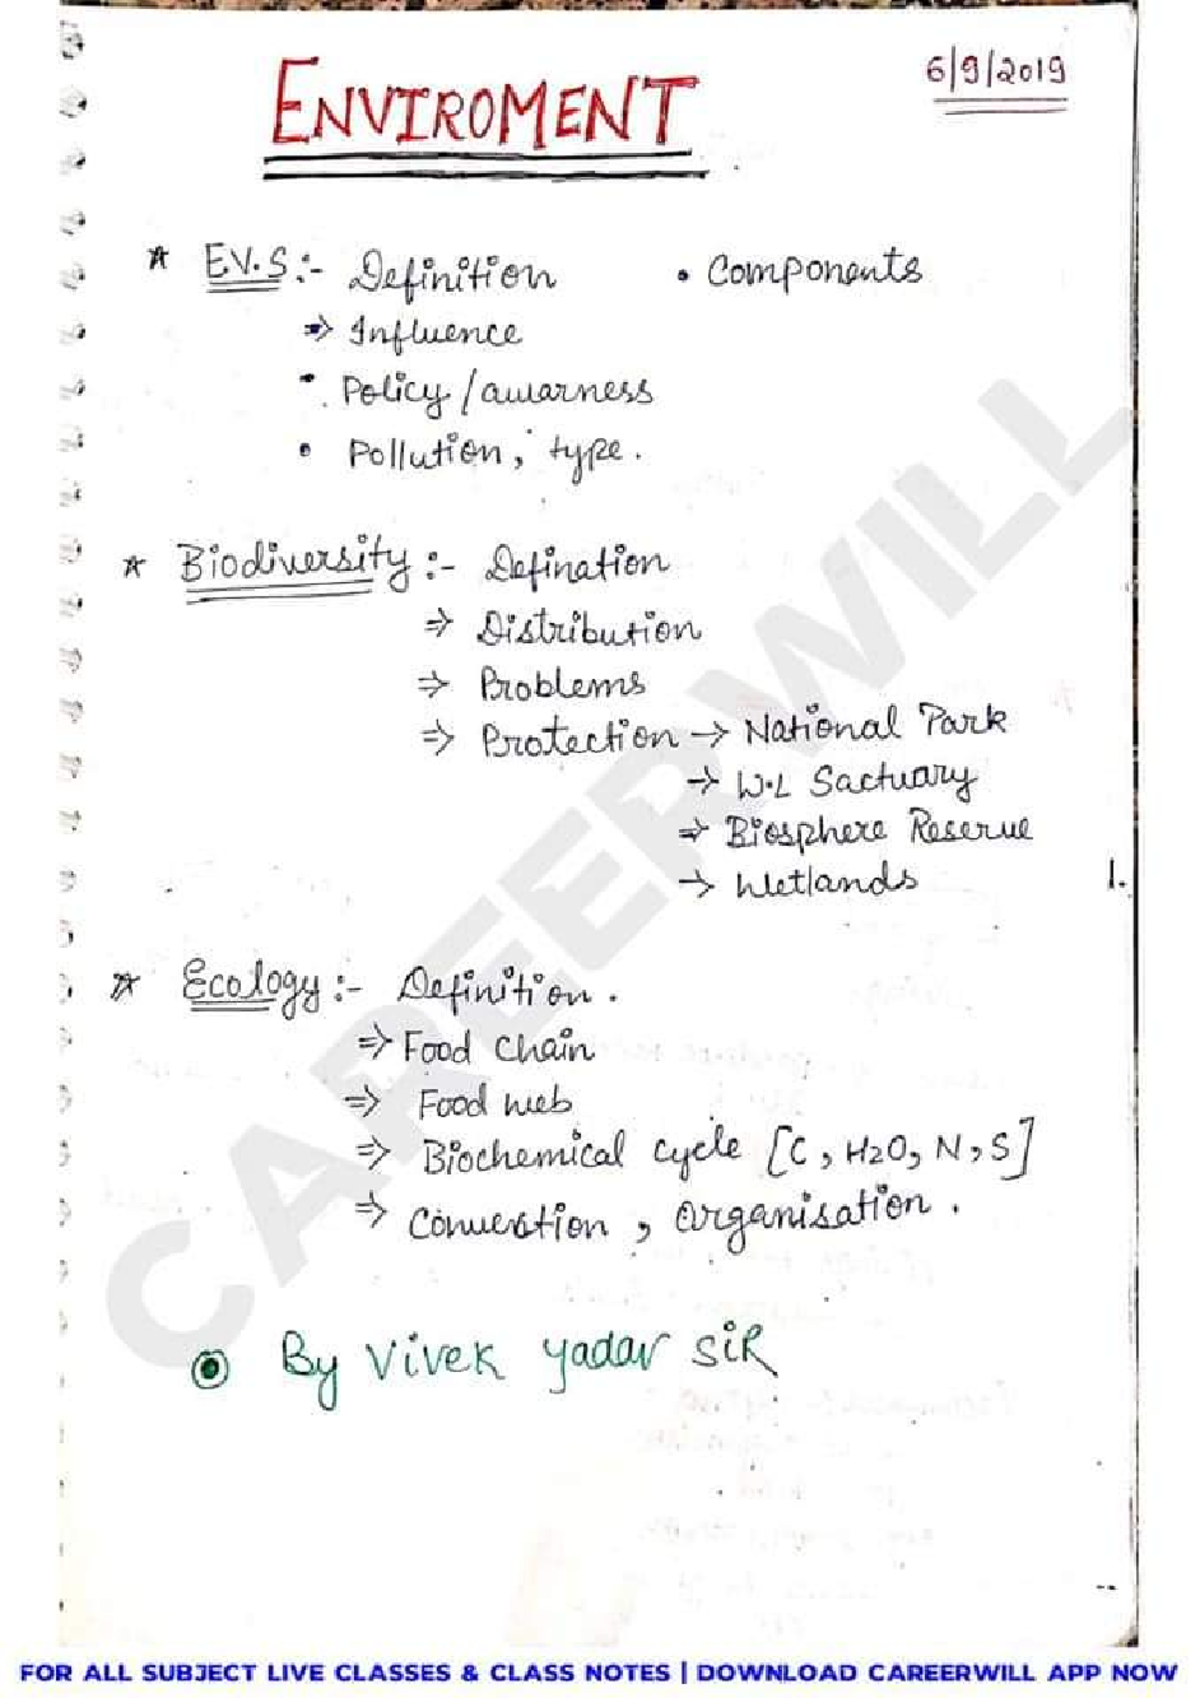 6/9/2019
ENVIROMENT
* EV.S:- Definition • Components
⇒ Influence
• Policy/awarness
• Pollution, type.
* Biodiversity:- Defination
⇒ Distribution
⇒ Problems
⇒ Protection → National Park
→ W.L Sactuary
⇒ Biosphere Reserve
→ Wetlands
1.
* Ecology:- Definition.
⇒ Food Chain
⇒ Food web
⇒ Biochemical cycle [C, H2O, N, S]
⇒ , Organisation.
By Vivek yadav SiR
CAREERWILL
FOR ALL SUBJECT LIVE CLASSES & CLASS NOTES | DOWNLOAD CAREERWILL APP NOW